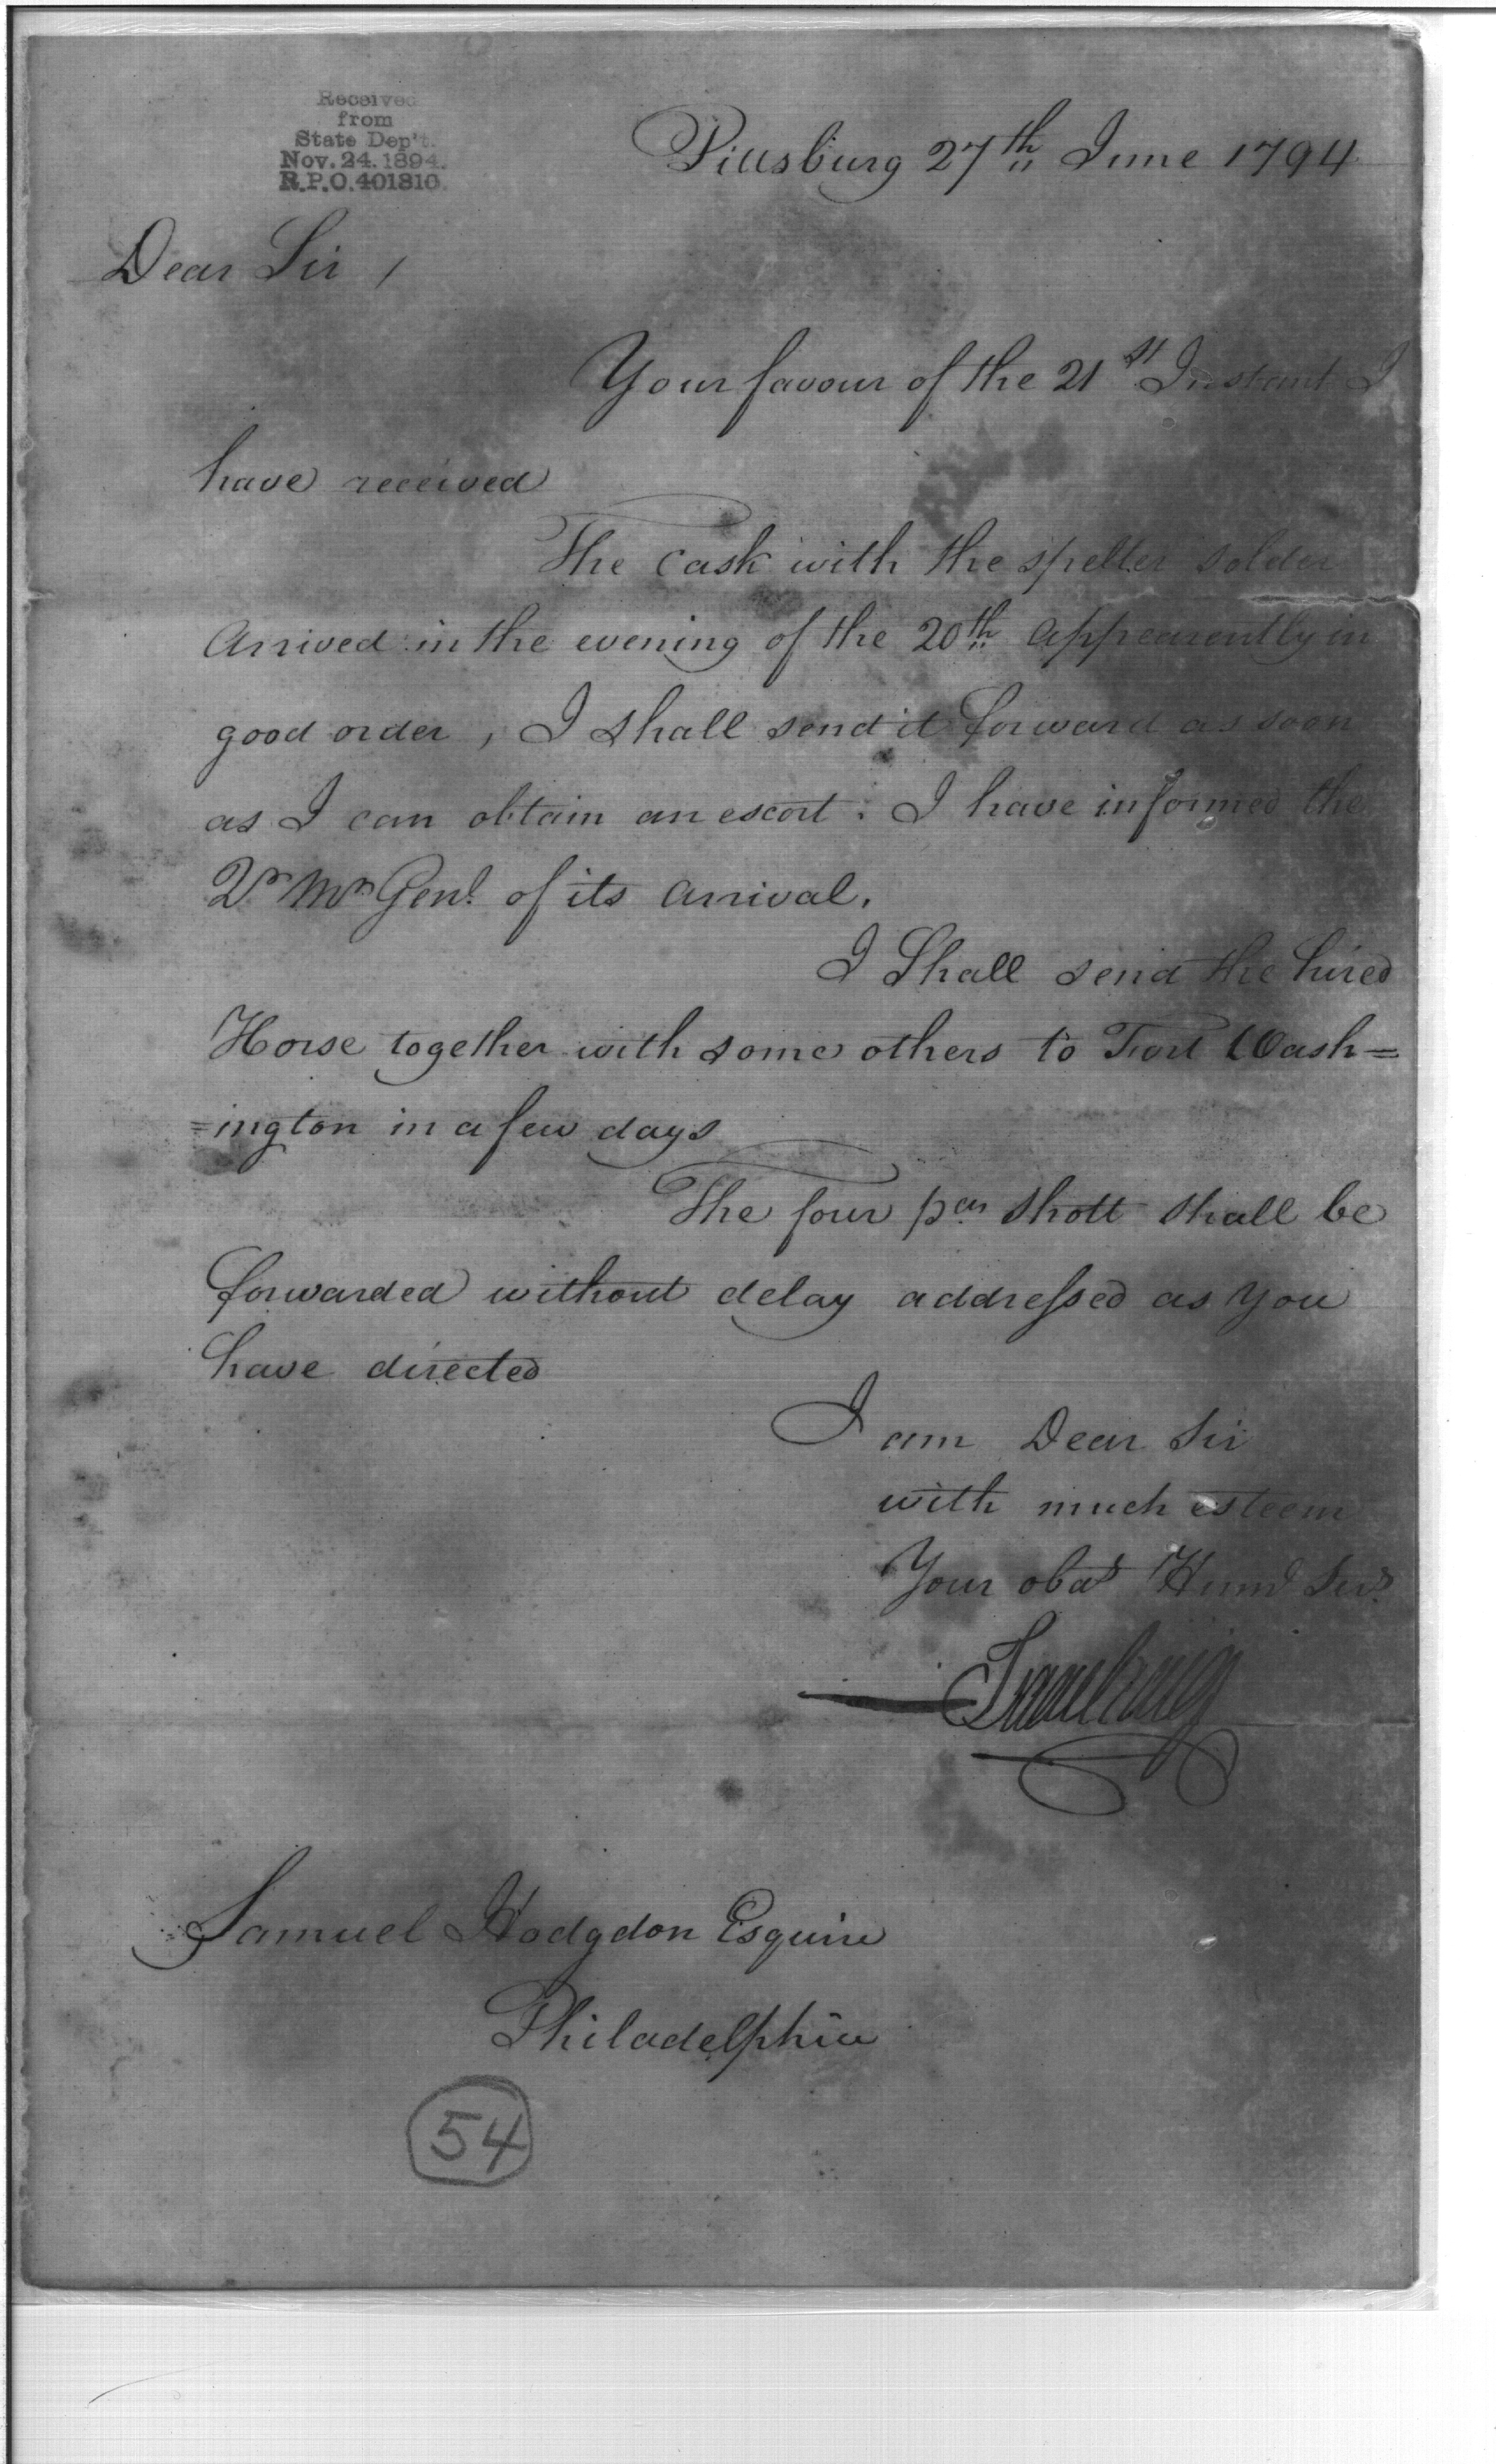 Received
from
State Dep't.
Nov. 24. 1894.
R.P.O. 401810.
Pittsburg 27th June 1794
Dear Sir,
Your favour of the 21st Instant I
have received
The Cask with the spelter solder
Arrived in the evening of the 20th appearently in
good order, I shall send it forward as soon
as I can obtain an escort. I have informed the
Qr Mr Genl. of its Arrival.
I Shall send the hired
Horse together with some others to Fort Wash=
=ington in a few days
The four pr. Shott shall be
forwarded without delay addressed as you
have directed
I am Dear Sir
with much esteem
Your obdt Huml Servt
Isaac Craig
Samuel Hodgdon Esquire
Philadelphia
54